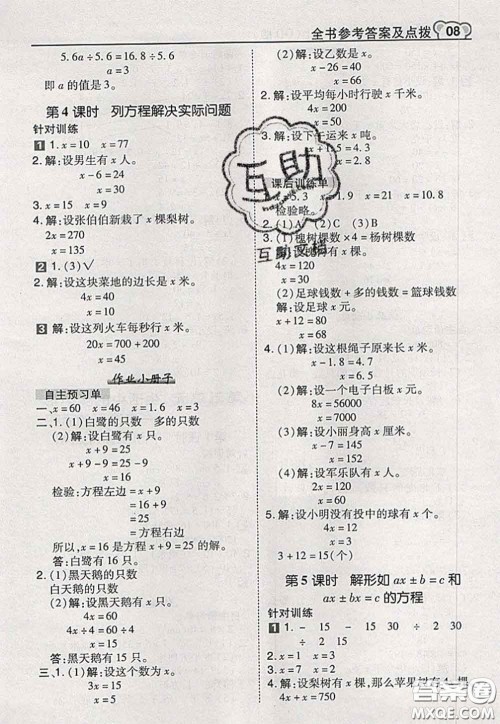 全书参考答案及点拨 08
5.6a÷5.6=16.8÷5.6
a=3
即a的值是3。
第4课时 列方程解决实际问题
针对训练
1 1. x=10 x=77
2. 解:设男生有x人。
x-6=24
x=30
3. x=15 x=9
4. 解:设张伯伯新栽了x棵梨树。
2x=270
x=135
2 1. (3)√
2. 解:设这块菜地的边长是x米。
4x=40
x=10
3 解:设这列火车每秒行x米。
20x=700+200
x=45
作业小册子
自主预习单
一、x=60 x=46 x=1.6 x=3
二、1. (1)白鹭的只数 多的只数
(2)解:设白鹭有x只。
x+9=25
x+9-9=25-9
x=16
检验:方程左边=x+9
=16+9
=25
=方程右边
所以,x=16是方程的解。
答:白鹭有16只。
2. (1)黑天鹅的只数
白天鹅的只数
(2)解:设黑天鹅有x只。
4x=60
4x÷4=60÷4
x=15
答:黑天鹅有15只。
三、1. (1)解:设这个数为x。
x+5=14
x=9
(2)解:设乙数是x。
x-26=40
x=66
2. 解:设平均每小时行驶x千米。
4x=300
x=75
3. 解:设下午运来x吨。
x+1.5=4.3
x=2.8
课后训练单
1. x=5.3 x=21 x=10.8
检验略。
2. (1)A (2)B (3)C
3. (1)槐树棵数×4=杨树棵数
解:设槐树有x棵。
4x=120
x=30
(2)足球钱数+多的钱数=篮球钱数
解:设足球x元。
x+12=80
x=68
4. (1)解:设这根绳子原来长x米。
x-1.6=5
x=6.6
(2)解:设一个电子白板x元。
8x=56000
x=7000
(3)解:设小丽身高x厘米。
x-9=151
x=160
(4)解:设军乐队有x人。
3x=360
x=120
5. 解:设小明没有投中的球有x个。
4x=12
x=3
3+12=15(个)
第5课时 解形如ax±b=c和
ax±bx=c的方程
针对训练
1 1. - 15 - 15 30 ÷ 2 30
÷ 2 15
2. x=5 x=7
3. x=4 x=2
4. 解:设梨树有x棵,那么苹果树有4x棵。
4x+x=750
互助
互助文档
答案圈
MXQE.COM